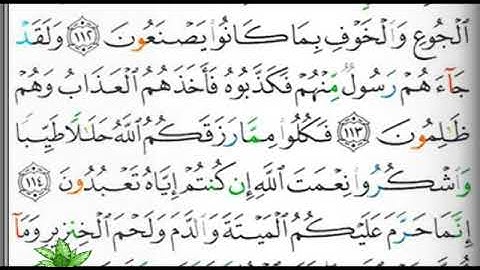 ٱلۡجُوعِ وَٱلۡخَوۡفِ بِمَا كَانُواْ يَصۡنَعُونَ ١١٢ وَلَقَدۡ
جَآءَهُمۡ رَسُولٞ مِّنۡهُمۡ فَكَذَّبُوهُ فَأَخَذَهُمُ ٱلۡعَذَابُ وَهُمۡ
ظَٰلِمُونَ ١١٣ فَكُلُواْ مِمَّا رَزَقَكُمُ ٱللَّهُ حَلَٰلٗا طَيِّبٗا
وَٱشۡكُرُواْ نِعۡمَتَ ٱللَّهِ إِن كُنتُمۡ إِيَّاهُ تَعۡبُدُونَ ١١٤
إِنَّمَا حَرَّمَ عَلَيۡكُمُ ٱلۡمَيۡتَةَ وَٱلدَّمَ وَلَحۡمَ ٱلۡخِنزِيرِ وَمَآ